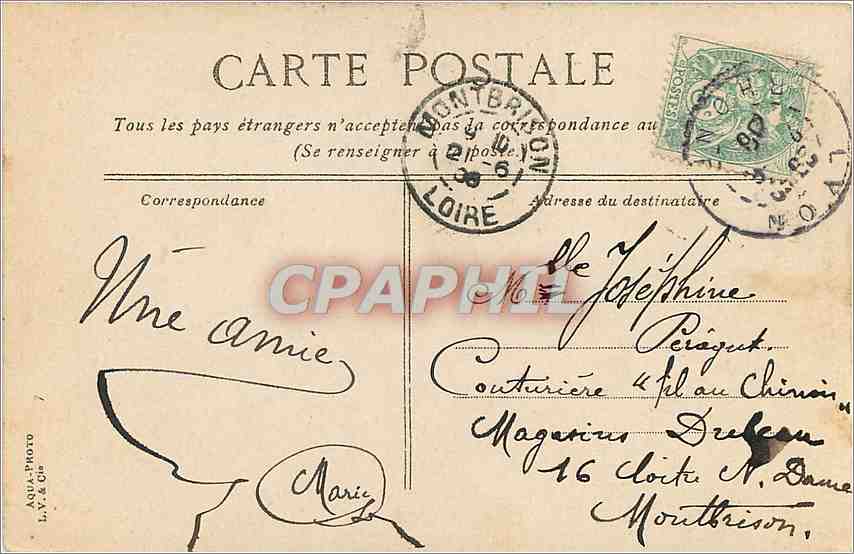 CARTE POSTALE
Tous les pays étrangers n'acceptent pas la correspondance au
(Se renseigner à la poste.)
MONTBRISON
9 10
12 -6
08
LOIRE
POSTES
LYON
RHONE
08
Correspondance
Adresse du destinataire
CPAPHIL
Une amie
Marie
Mlle Joséphine
Couturière "fil au Chinois"
Magasins
16 Cloitre N. Dame
Montbrison.
AQUA-PHOTO
L.V. & Cie
7